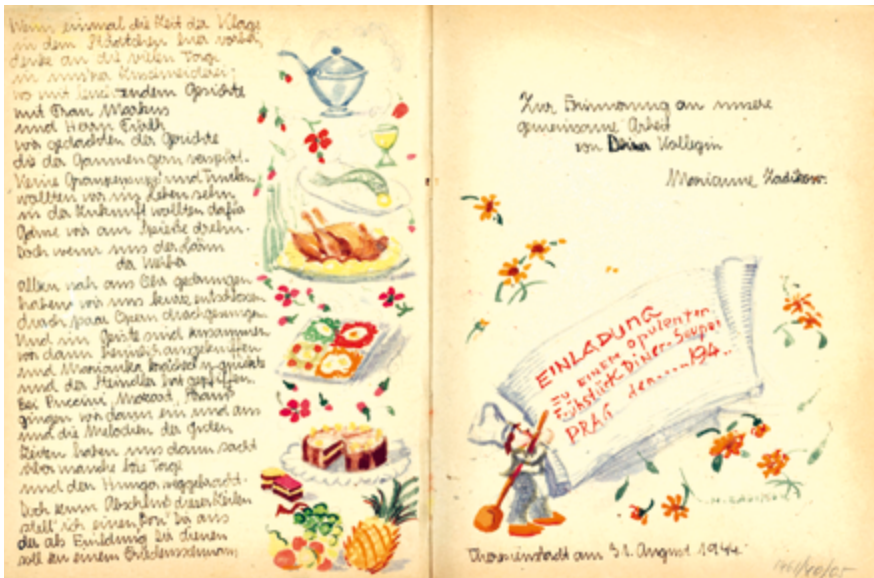 Wenn einmal die Zeit der Klage
in dem Städtchen hier vorbei,
denke an die vielen Tage
in uns'rer
wo mit leuchtendem Gesichte
mit Frau Markus
und Herrn Fürth
wir gedachten der Gerichte
die der Gaumen gern verspürt.
Keine und
wollten wir im Leben sehn,
in der Zukunft wollten dafür
Gäme wir am drehn.
Doch wenn uns der Lärm
der Weiber
allzu nah ans Ohr gedrungen
haben wir uns kurz entschlossen
durch paar Opern durchgesungen.
Und im Geiste sind zusammen
wir dann heimlich ausgekniffen
und Marianka knöchel'n quickte
und der Heindler hat gepfiffen.
Bei Puccini, Mozart, Strauss
gingen wir dann ein und aus
und die Melodien der
Zeiten haben uns dann sacht
über manche böse Tage
und den Hunger weggebracht.
Doch zum Abschluss dieser Zeilen
stell' ich einen "Bon" Dir aus
der als Einladung Dir dienen
soll zu einem Friedensschmaus,
Zur Erinnerung an unsere
gemeinsame Arbeit
von Deiner Kollegin
Marianne Zadikow.
EINLADUNG
ZU EINEM opulenten
Frühstück-Diner-Souper
PRAG den.....194..
M. ZADIKOW
Theresienstadt am 31. August 1944.